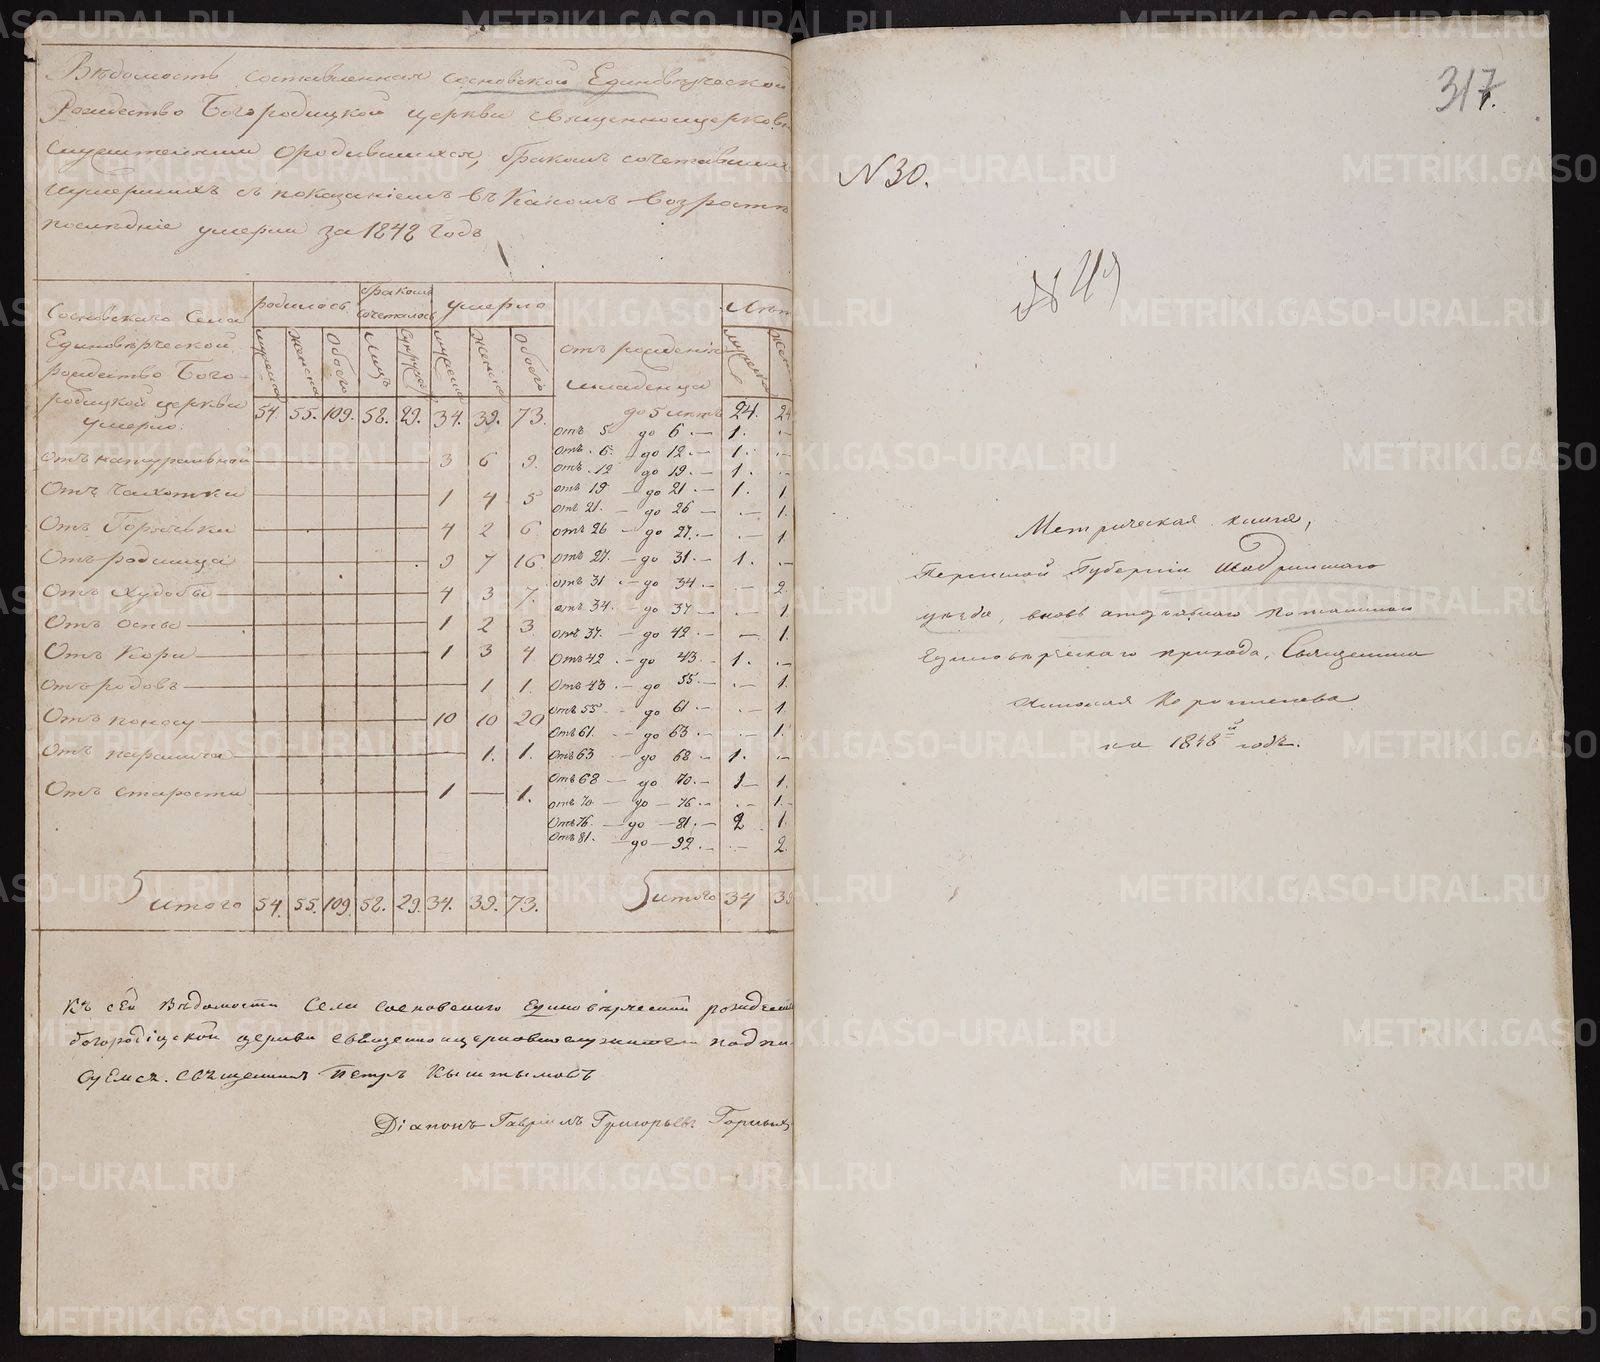 Вѣдомость составленная сосновской Единовѣрческой
Рождество Богородицкой церкви священноцерковно
служителями ородившихся, бракомъ сочетавши
иумершихъ съ показаніемъ въ Какомъ возростѣ
послѣдніе умерли за 1848 годъ
Сосновскаго Села
Единовѣрческой
рождество Бого-
родицкой церкви
умерло:
родилось
бракомъ сочеталось
умерло
отъ рожденія
младенца
Лѣт
мужеска
женска
Обоего
Лицъ
Супруж
мужеска
женска
Обоего
мужеска
жен
54. 55. 109. 58. 29. 34. 39. 73. до 5 лѣтъ 24. 24
Отъ 5 до 6 .— 1. .—
Отъ натуральной 3 6 9. Отъ . 6. до 12 .— 1. .—
Отъ . 12 до 19 .— 1. .—
Отъ Чахотки 1 4 5 Отъ 19 — до 21 .— 1. 1
Отъ 21. — до 26 .— .— 1.
Отъ Горячьки 4 2 6 Отъ 26 — до 27. .— .— 1
Отъ родимца 9 7 16. Отъ 27. — до 31 .— 1. .—
Отъ Худобы 4 3 7. Отъ 31 .— до 34 .— — 2.
Отъ оспы 1 2 3 Отъ 34. — до 37 .— — 1
Отъ 37. — до 42 .— — 1.
Отъ Кори 1 3 4. Отъ 42 .— до 43. 1. .—
Отъ родовъ 1 1. Отъ 43 .— до 55. — .— 1.
Отъ поносу 10 10 20 Отъ 55 . — до 61 .— .— 1.
Отъ 61. . — до 63. — .— 1.
Отъ паралича 1. 1. Отъ 63 .— до 68 .— 1. .—
Отъ старости 1 — 1. Отъ 68 — до 70. — 1— 1.
Отъ 70 — до — 76 .— .— 1.
Отъ 76. — до — 81. — 2 1.
Отъ 81. — до — 92. — .— 2.
итого 54. 55. 109. 58. 29. 34. 39. 73. итого 34 39
Къ сей Вѣдомости Села сосновского Единовѣрческой рождест
богородіцской церкви священно ицерковнослужители подпи
суемся. священникъ Петръ Кыштымовъ
Діаконъ Гавріилъ Григорьевъ
317.
N 30.
Метрическая книга,
Пермской Губерніи Шадринскаго
уѣзда, вновь
Единовѣрческаго прихода, Священника
Николая
на 1848й годъ.
METRIKI.GASO-URAL.RU